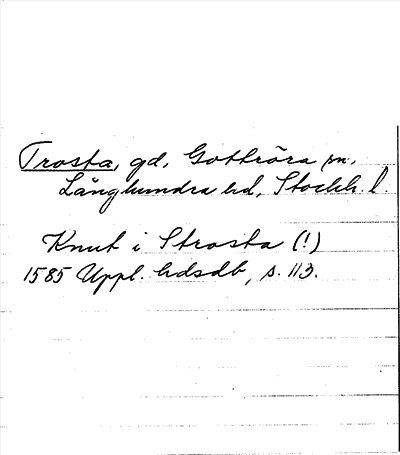 Trosta, gd, Gottröra sn,
Långhundra hd, Stockh. l.
Knut i Strosta (!)
1585 Uppl. hdsdb, s. 113.